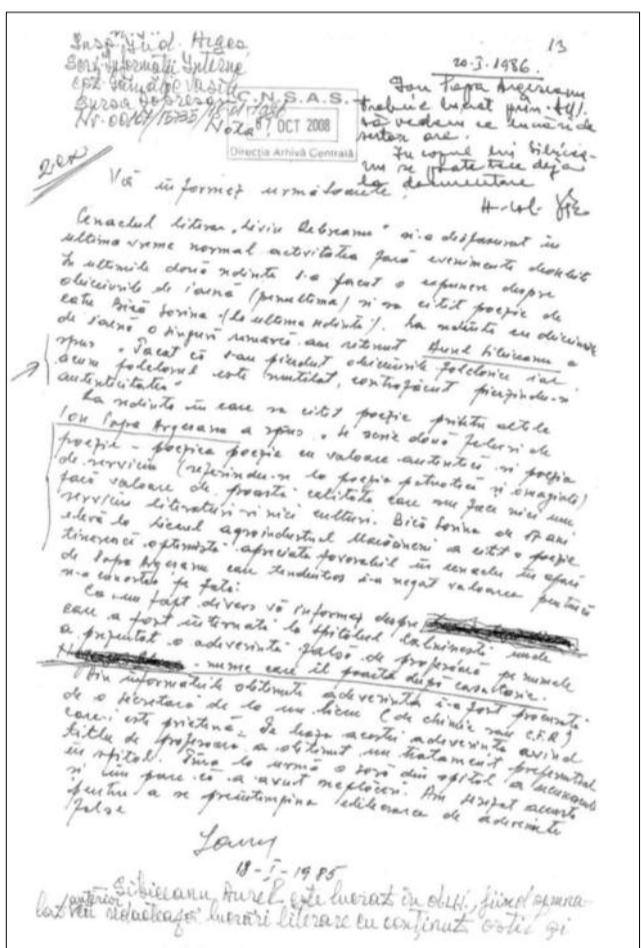 Insp. Jud. Argeș
Serv. Informații Interne
cpt. Tămădge Vasile
Sursa
Nr. 00161/
Nota
C.N.S.A.S.
07 OCT 2008
Direcția Arhivă Centrală
13
20-I-1986.
Ion Popa Argeșanu
trebuie lucrat prin
să vedem ce
are.
În cazul lui Sibicea-
nu se poate trece deja
la documentare
Vă informez următoarele:
Cenaclul literar „Liviu Rebreanu” și-a desfășurat în
ultima vreme normal activitatea fără evenimente deosebite
În ultimile două ședințe s-a facut o expunere despre
obiceiurile de iarnă (penultima) și sa citit poezie de
catre Bică Sorina (la ultima ședință). La ședința cu obiceiuri
de iarnă o singură remarcă am reținut Aurel Sibiceanu a
spus „Pacat că s-au pierdut obiceiurile folclorice iar
acum folclorul este mutilat, contrafăcut pierzîndu-și
autenticitatea”
La ședința în care sa citit poezie printre altele
Ion Popa Argeșanu a spus „se scrie două feluri de
poezie - poezie cu valoare autentică și poezia
de serviciu (referindu-se la poezia patriotică și omagială)
fară valoare de proastă calitate care nu face nici un
serviciu literaturii și nici culturii. Bică Sorina de 17 ani
elevă la liceul agroindustrial Mărăcineni a citit o poezie
tinerească optimistă apreciată favorabil în cenaclu în afară
de Popa Argeșanu care tendențios i-a negat valoarea pentrucă
n-a cunoscut pe fată.
Ca un fapt divers vă informez despre
care a fost internată la spitalul Călinești unde
a prezentat o adeverință falsă de profesoară pe numele
- nume care îl poartă după casatorie.
Din informațiile obținute adeverința i-a fost procurată
de o secretară de la un liceu (de chimie sau C.F.R)
care-i este prietenă. În baza acestei adeverințe avînd
titlu de profesoara a obținut un tratament preferențial
în spital. Pîna la urmă o soră din spital a
și îmi pare că a avut neplăceri. Am sesizat aceasta
pentru a se preîntîmpina eliberarea de adeverințe
false
18-I-1985
Sibiceanu Aurel este lucrat în fiind semna-
lat anterior că redactează lucrări literare cu conținut ostil și